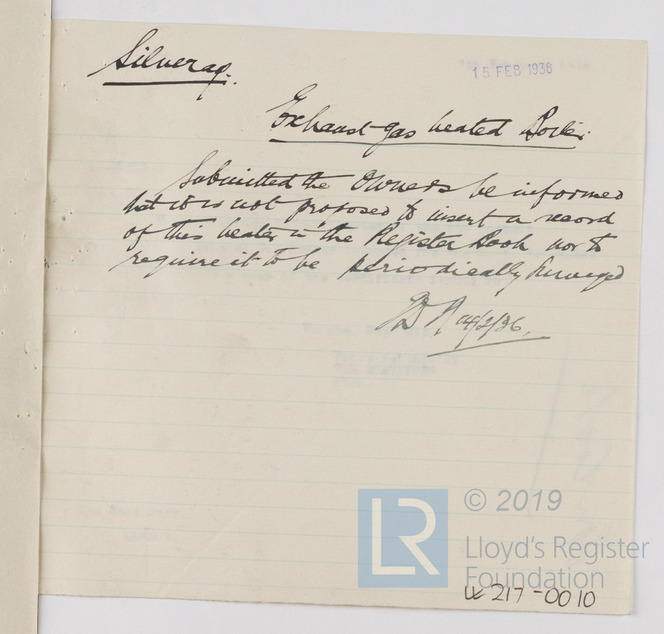 Silveray.
15 FEB 1936
Exhaust gas heated Boiler.
Submitted the Owners be informed
that it is not proposed to insert a record
of this heater in the Register Book nor to
require it to be periodically surveyed
14/2/36.
LR
© 2019
Lloyd's Register
Foundation
217-0010